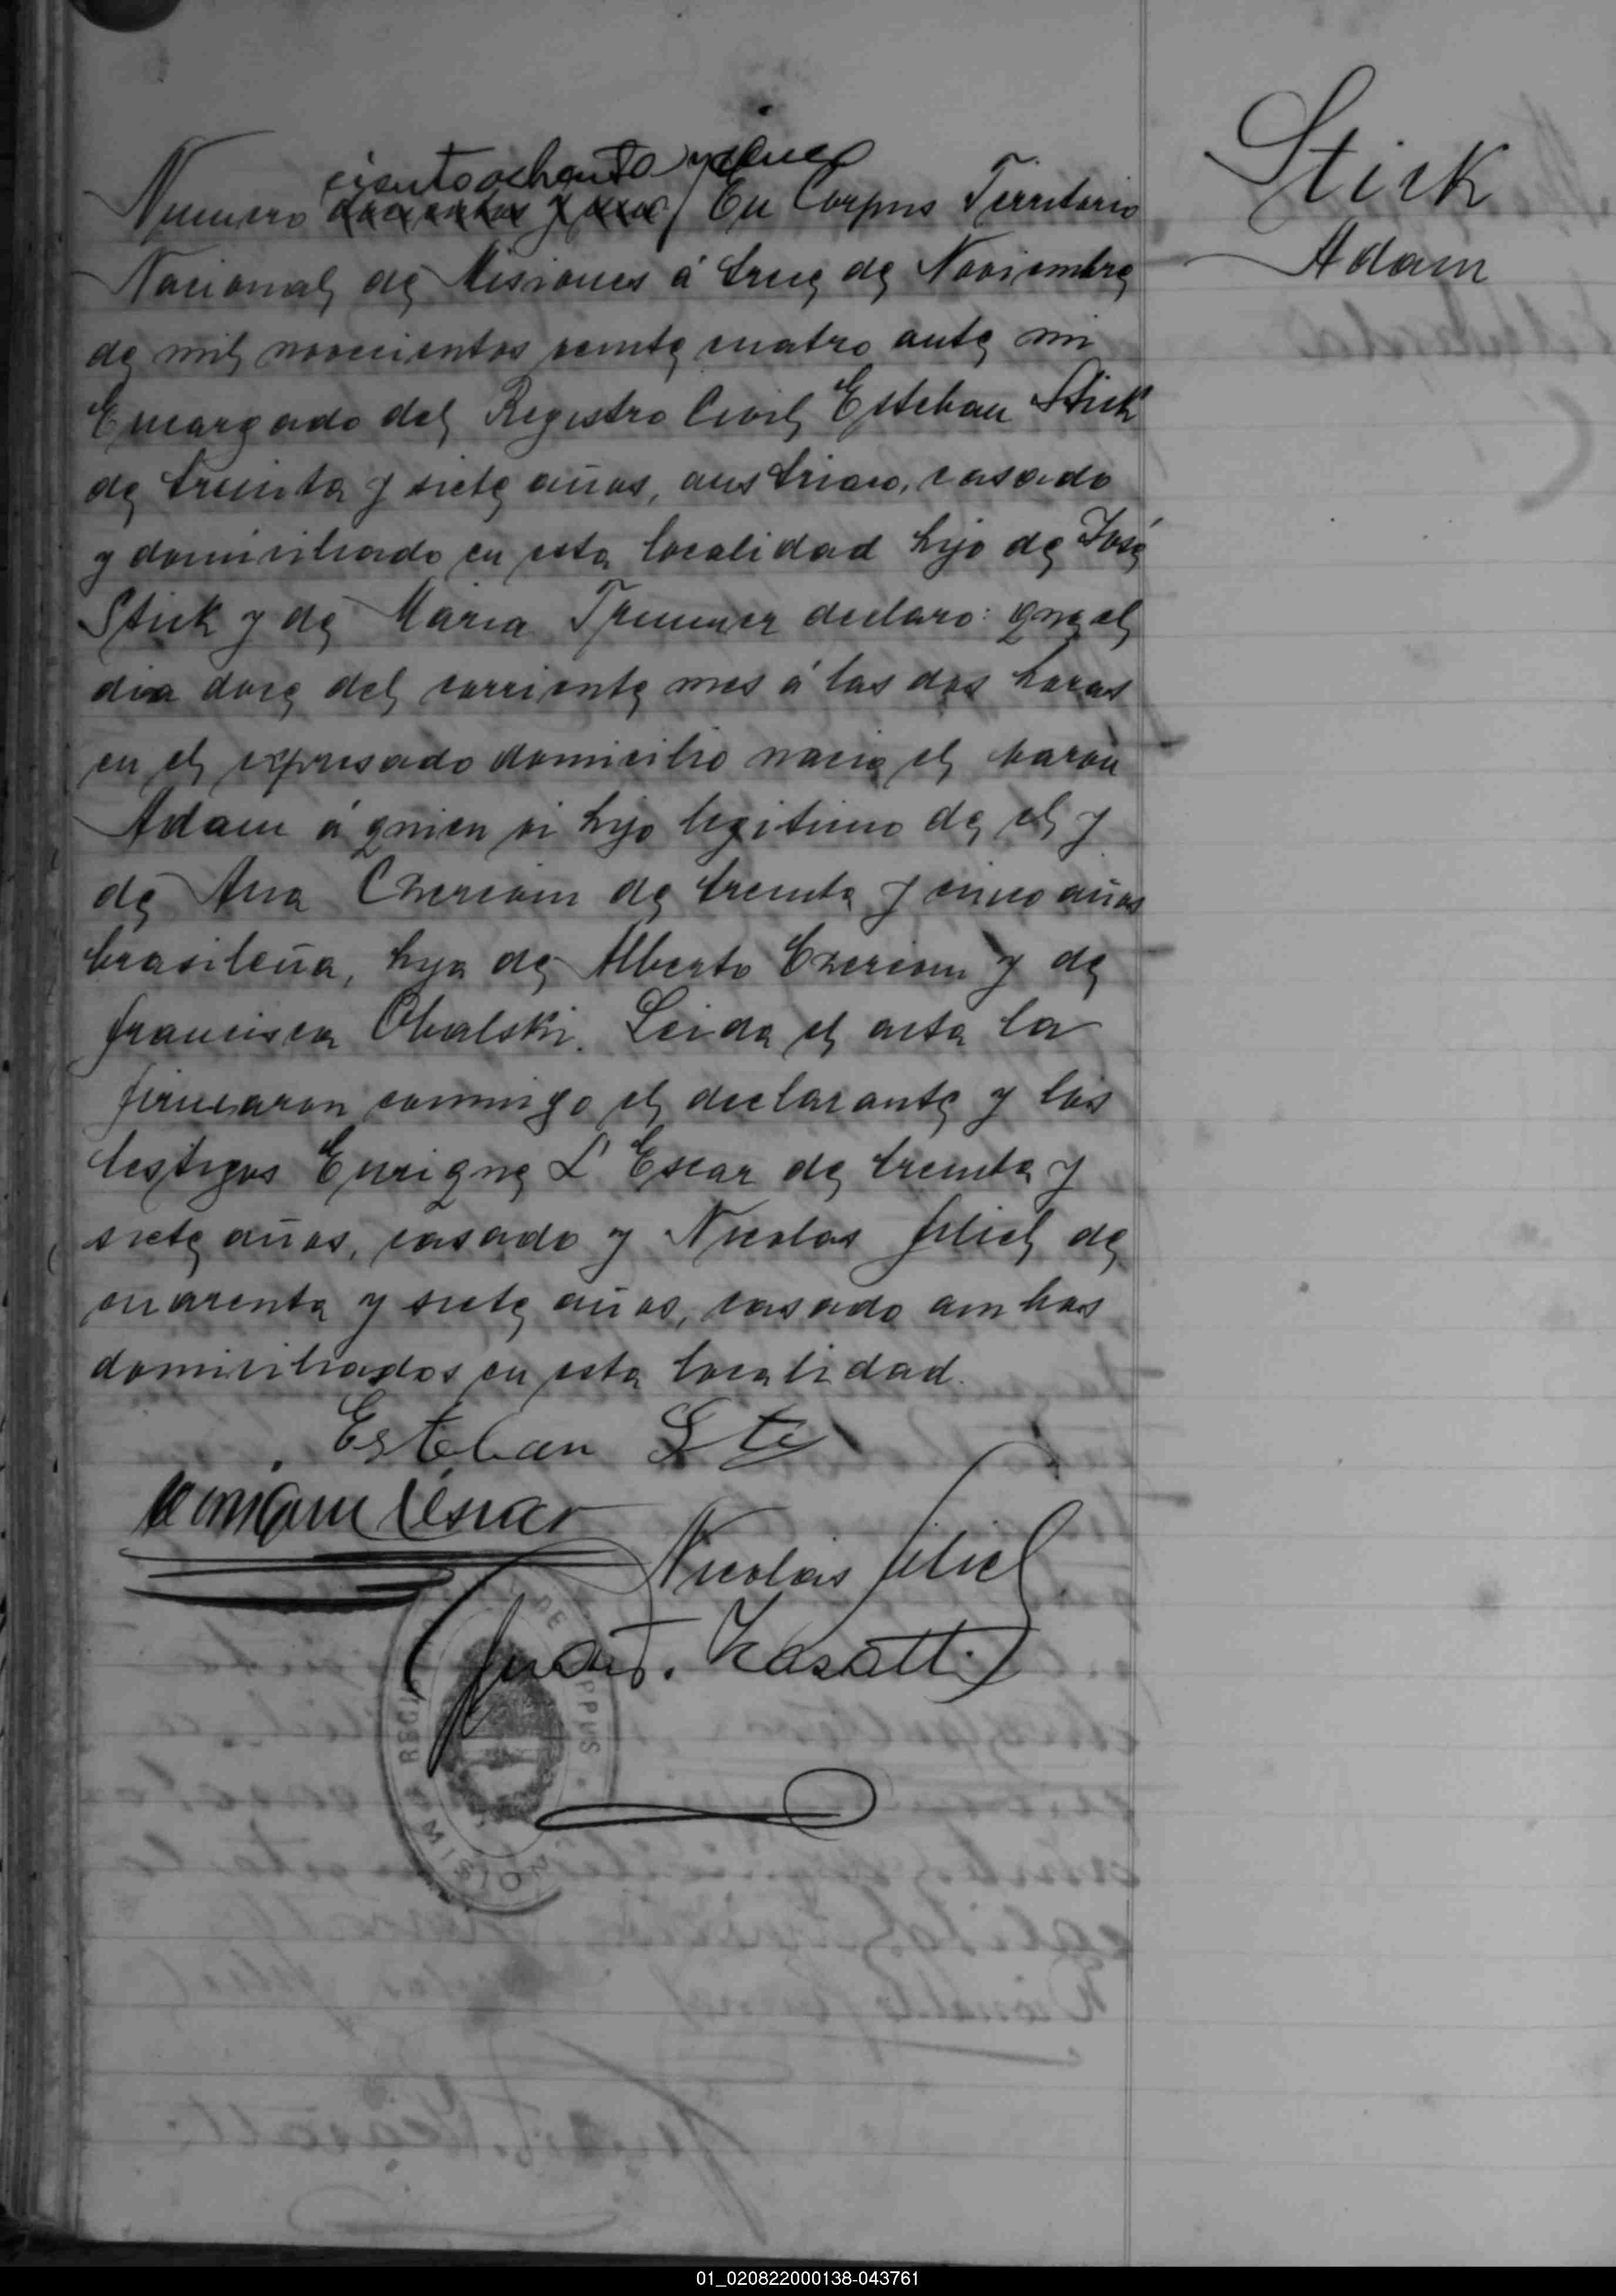 Stick
Adam
ciento ochenta y cinco
Numero En Corpus Territorio
Nacional de Misiones á trece de Noviembre
de mil novecientos veinte cuatro ante mi
Encargado del Registro Civil Esteban Stick
de treinta y siete años, austriaco, casado
y domiciliado en esta localidad hijo de José
Stick y de Maria declaro: que el
dia doce del corriente mes á las dos horas
en el expresado domicilio nacio el varon
Adam á quien vi hijo legitimo de el y
de Ana Czerion de treinta y cinco años
brasileña, hija de Alberto Czerion y de
Francisca Obalski. Leida el acta la
firmaron conmigo el declarante y los
testigos Enrique L'Escar de treinta y
siete años, casado y Nicolas Filiel de
cuarenta y siete años, casado ambos
domiciliados en esta localidad.
Esteban
Nicolas Filiel
Juan T. Kasatti
01_020822000138-043761